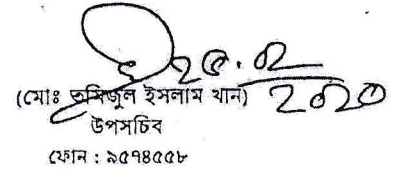 ২৫.০২
২০২০
(মোঃ তমিজুল ইসলাম খান)
উপসচিব
ফোন : ৯৫৭৪৫৫৮